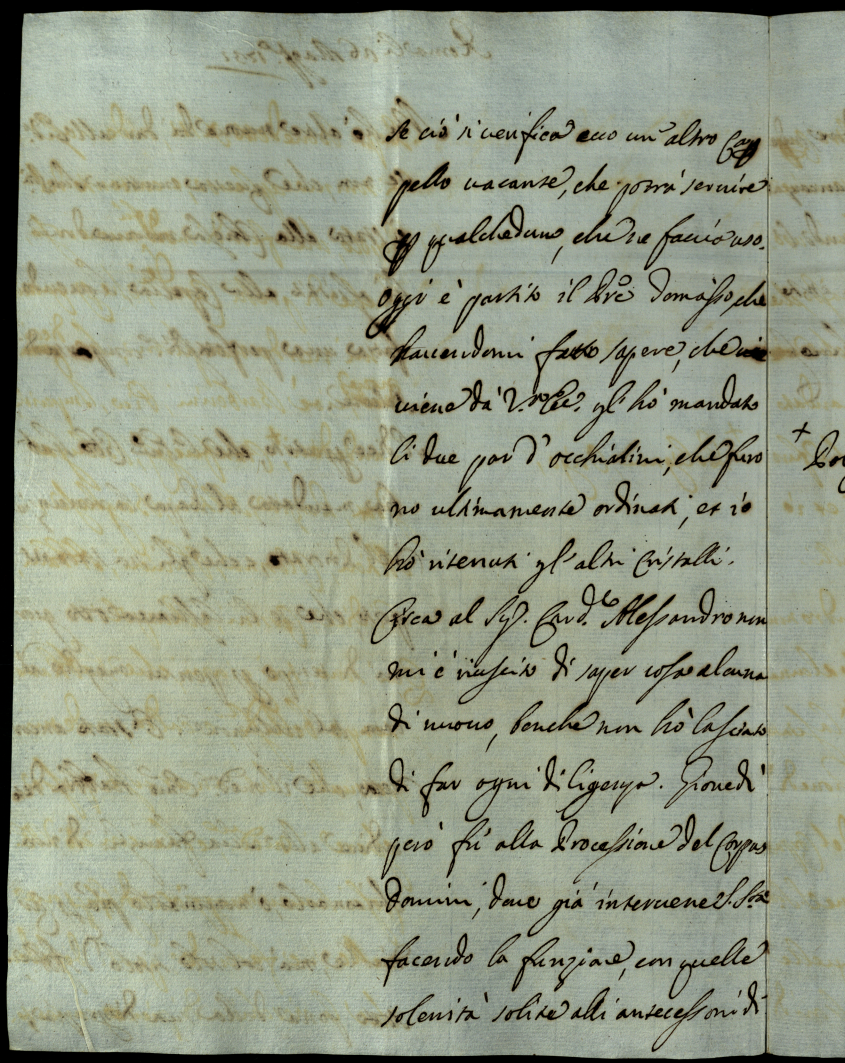 se ciò si verifica ecco un altro Cap
pello vacante, che potrà servire
p qualcheduno, che ne faccia uso.
Oggi è partito il Pre Tomasso, che
havendomi fatto sapere, che
viene dà V. Ecc. gl' hò mandato
li due par d'occhialini, che furo
no ultimamente ordinati, et io
hò ritenuti gl' altri Cristalli.
Circa al Sig. Card.le Alessandro non
mi è riuscito di saper cosa alcuna
di nuovo, benche non hò lasciato
di far ogni diligenza. Giovedi
però fù alla Processione del Corpus
Domini, dove già intervene S. Stà
facendo la funzione, con quelle
solenità solite alli antecessori di
+